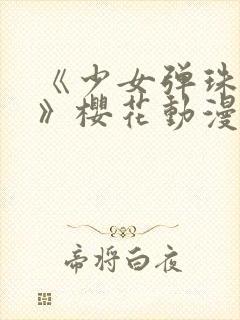 《少女弹珠
》櫻花動漫
帝将白夜